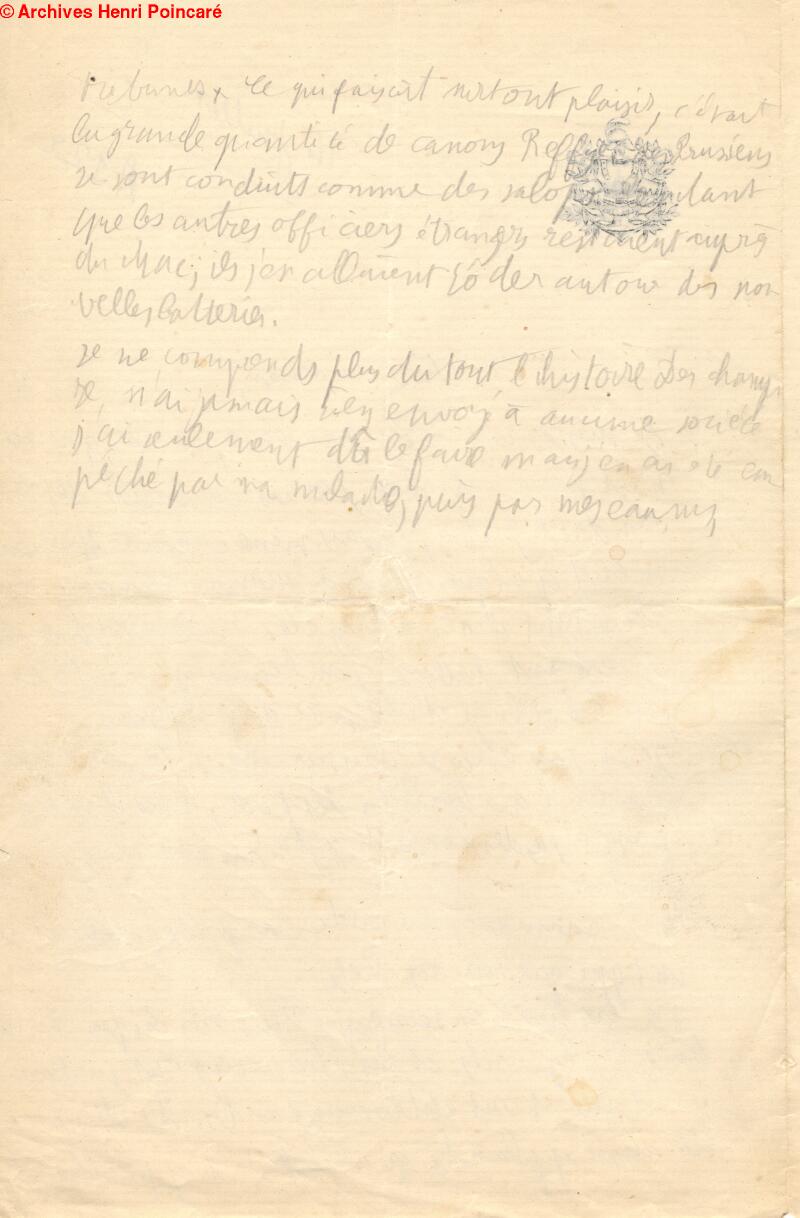 © Archives Henri Poincaré
tribunes. Ce qui faisait surtout plaisir, c'était
la grande quantité de canons Reffye. Les Prussiens
se sont conduits comme des salops. Pendant
que les autres officiers étrangers restaient auprès
du Mac, ils s'en allaient rôder autour des nou
velles batteries.
Je ne comprends plus du tout l'histoire Des champs
Je n'ai jamais rien envoyé à aucune société
j'ai seulement dû le faire mais j'en ai été em
pêché par ma maladie, puis par mes examens,